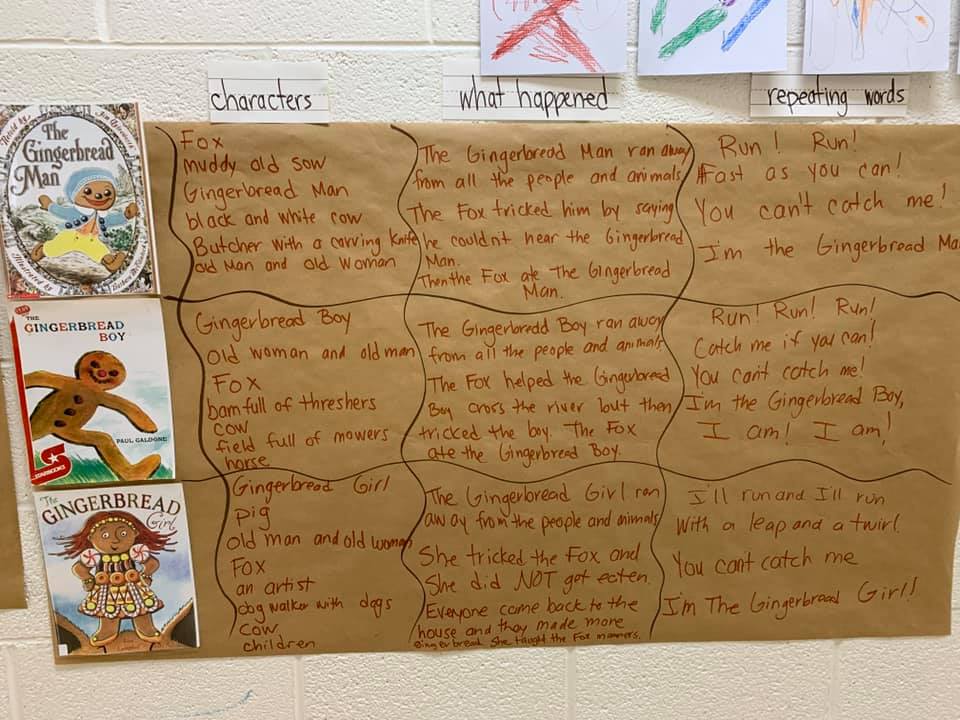 characters
what happened
repeating words
The
Gingerbread
Man
Fox
muddy old sow
Gingerbread Man
black and white cow
Butcher with a carving knife
old Man and old Woman
The Gingerbread Man ran away
from all the people and animals
The Fox tricked him by saying
he couldn't hear the Gingerbread
Man.
Then the Fox ate The Gingerbread
Man.
Run! Run!
Fast as you can!
You can't catch me!
I'm the Gingerbread Ma
THE
GINGERBREAD
BOY
PAUL GALDONE
Gingerbread Boy
Old woman and old man
Fox
barn full of threshers
cow
field full of mowers
horse
The Gingerbread Boy ran away
from all the people and animals
The Fox helped the Gingerbread
Boy cross the river but then
tricked the boy. The Fox
ate the Gingerbread Boy.
Run! Run! Run!
Catch me if you can!
You can't catch me!
I'm the Gingerbread Boy,
I am! I am!
The
GINGERBREAD
Girl
Gingerbread Girl
pig
old man and old woman
Fox
an artist
dog walker with dogs
cow
children
The Gingerbread Girl ran
away from the people and animals
She tricked the Fox and
She did NOT get eaten.
Everyone came back to the
house and they made more
gingerbread. She taught the Fox manners.
I'll run and I'll run
With a leap and a twirl
You can't catch me
I'm The Gingerbread Girl!